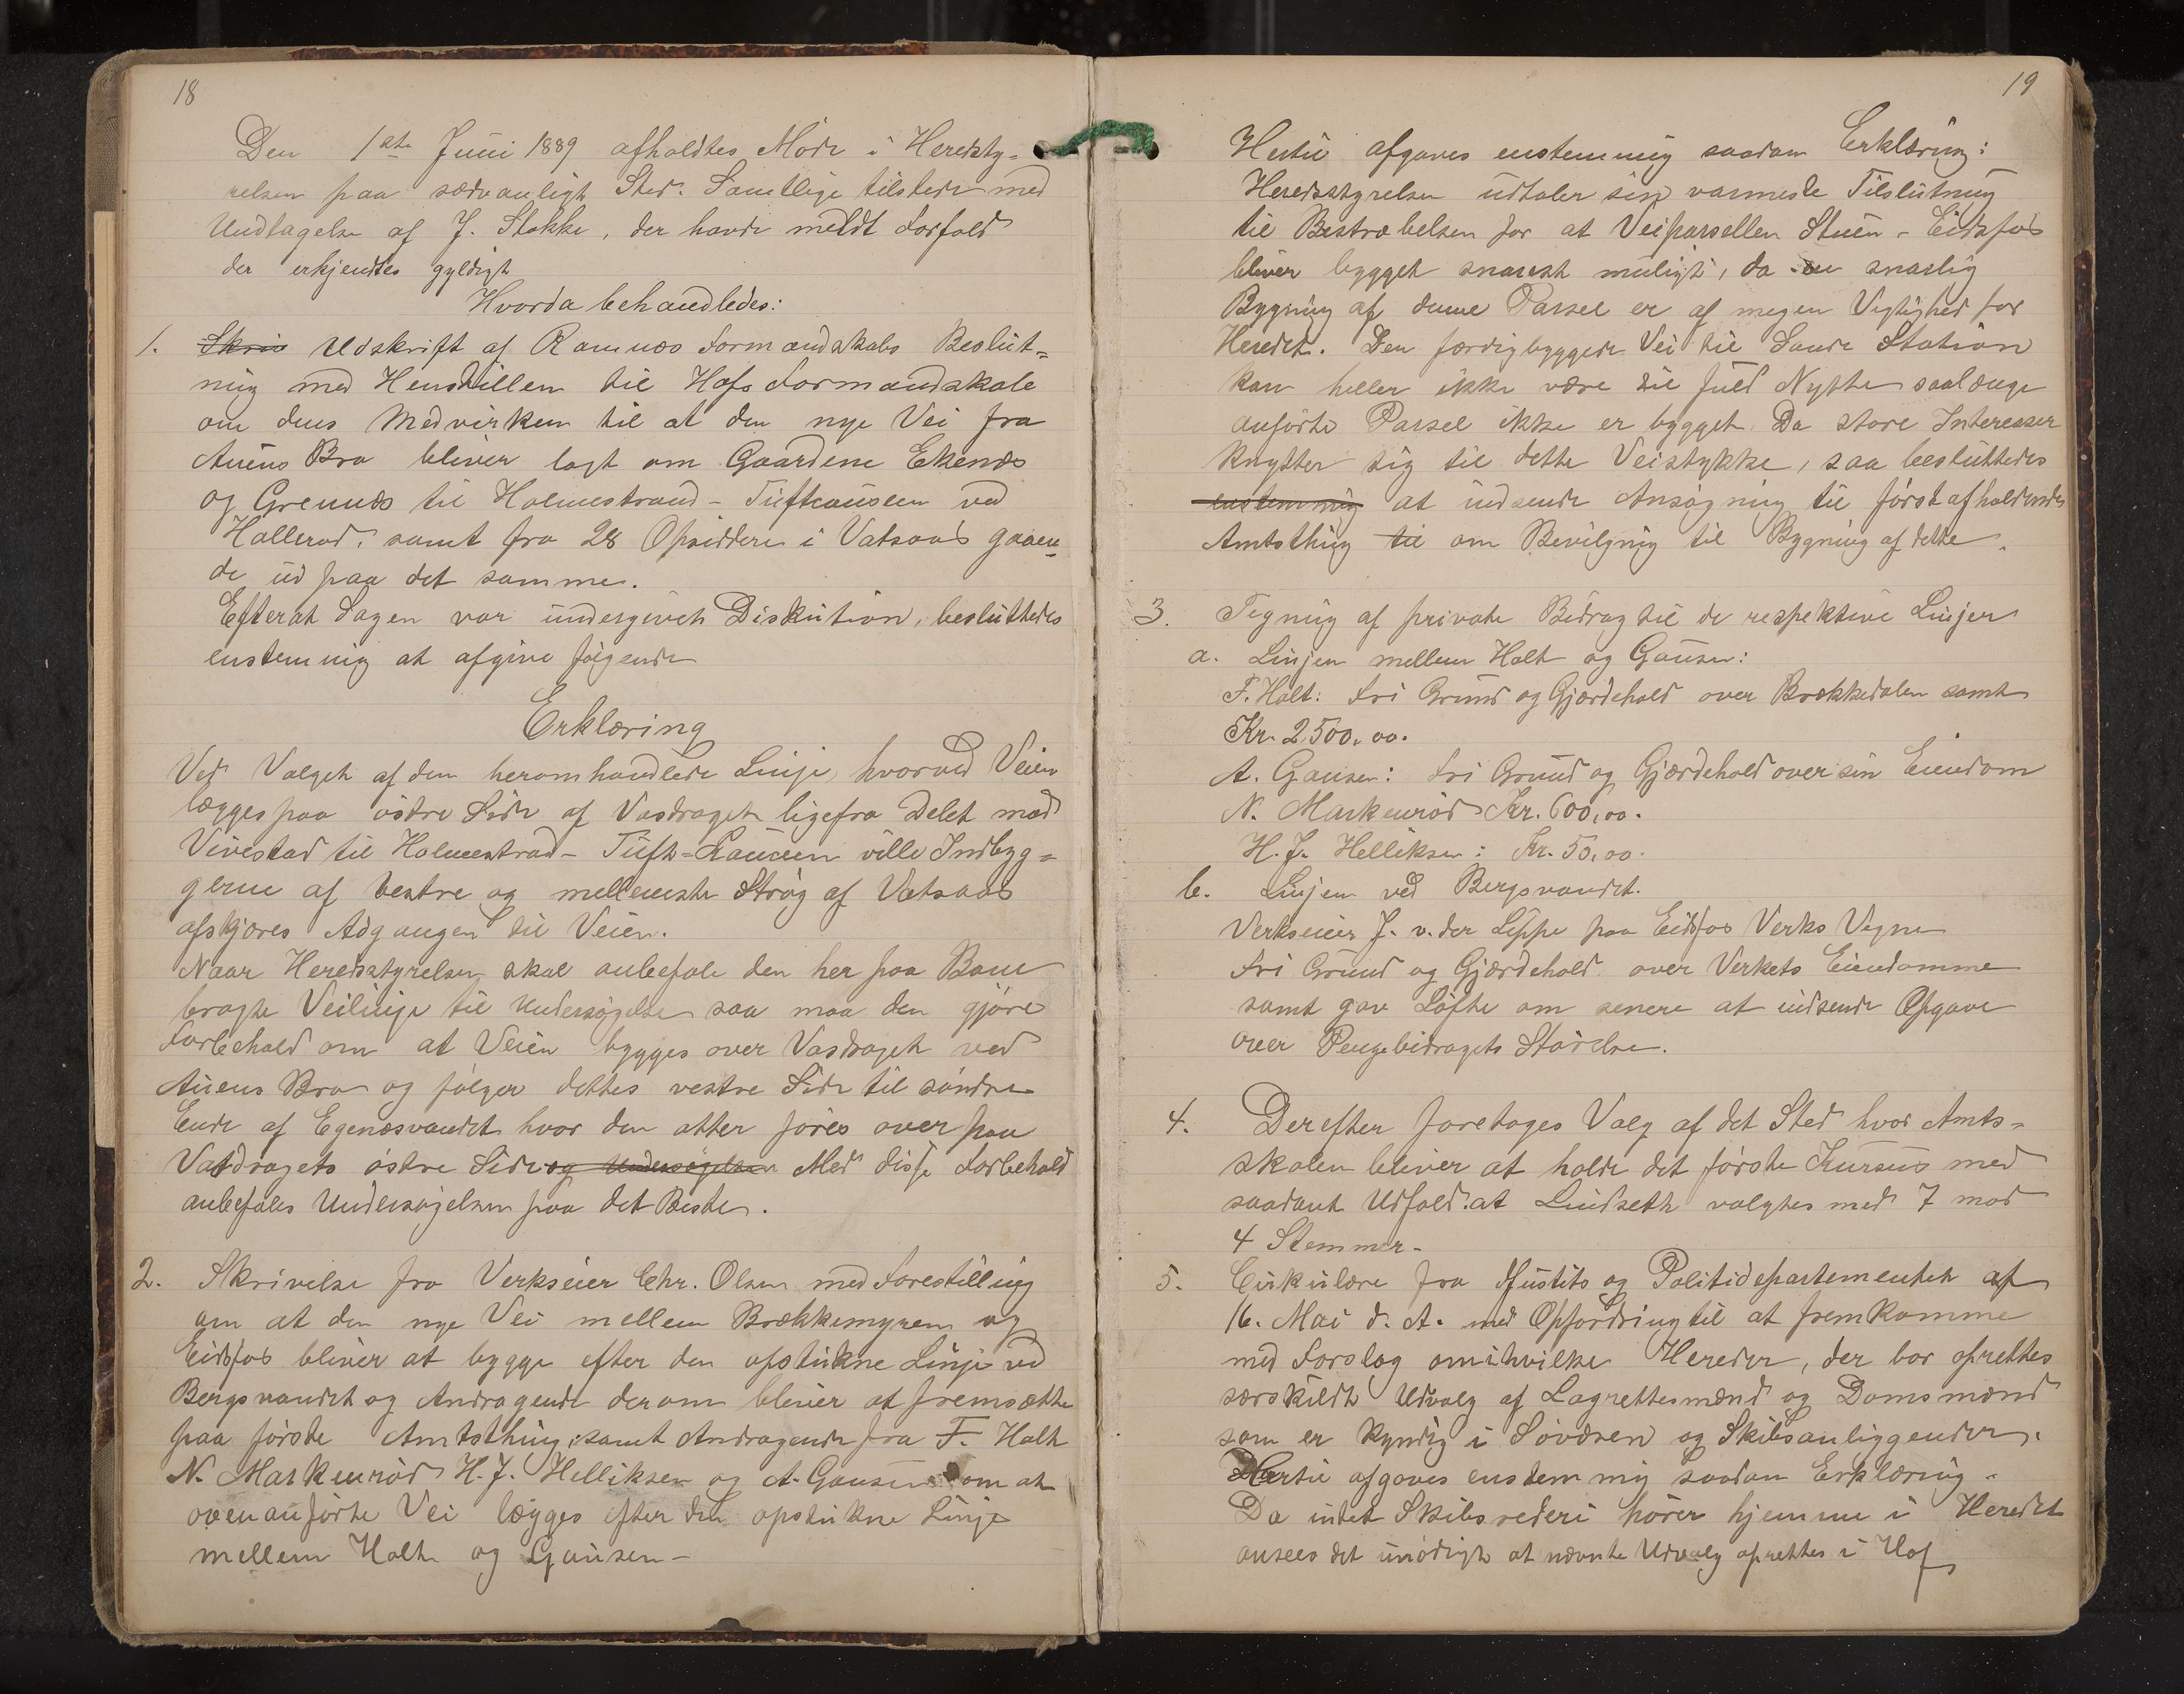 18
Den 1ste Juni 1889 afholdtes Möde i Heredsty=
relsen paa sædvanligt Sted. Samtlige tilstede med
Undtagelse af J. Stokke, der havde meldt Forfald
der erkjendtes gyldigt
Hvorda behandledes:
1. Skriv Udskrift af Ramnæs Formandskabs Beslut=
ning med Henstillen til Hofs Formandskab
om dens Medvirken til at den nye Vei fra
Auens Bro bliver lagt om Gaardene Ekenæs
og Grennæs til Holmestrand-Tufteausen ved
Hallerød, samt fra 28 Opsiddere i Vatsaas gaaen=
de ud paa det samme.
Efterat Sagen var undergivet Diskution, besluttedes
enstemmig at afgive følgende
Erklæring
Ved Valget af den heromhandlede Linje, hvorved Veien
lægges paa östre Side af Vasdraget ligefra Delet med
Vivestad til Holmestrad-Tuft=Rausen ville Indbyg=
gerne af vestre og mellemste Ströj af Vatsaas
afskjæres Adgangen til Veien.
Naar Heredsstyrelsen skal anbefale den her paa Bane
bragte Veilinje til Undersøgelse saa maa den gjöre
Forbehold om at Veien bygges over Vasdraget ved
Auens Bro og fölger dettes vestre Side til söndre
Ende af Egenæsvandet hvor den atter föres over paa
Vatdragets östre Side og Undersøgelsen Med disse Forbehold
anbefales Undersøjelsen paa det Beste.
2. Skrivelse fra Verkseier Chr. Olsen med Forestilling
om at den nye Vei mellem Brækkemyren og
Eidsfos bliver at bygge efter den opstukne Linje ved
Bergsvandet og Andragende derom bliver at fremsætte
paa förste Amtsthing, samt Andragende fra F. Holt
N. Markenröd H. J. Helliksen og A. Gausen om at
ovenanförte Vei lægges efter den opstukne Linje
mellem Holt og Gausen-
19
Hertil afgaves enstemmig saadan Erklæring:
Heredsstyrelsen udtaler sin varmeste Tilslutning
til Bestræbelsen for at Veiparsellen Stuen-Eidsfos
bliver bygget snarest muligt, da en snarlig
Bygning af denne Parsel er af megen Vigtighed for
Heredet. Den færdigbyggede Vei til Sande Station
kan heller ikke være til fuld Nytte saalænge
anförte Parsel ikke er bygget. Da store Interesser
knytter sig til dette Veistykke, saa besluttedes
enstemmig at indsende Ansøgning til förstafholdende
Amtsthing til om Bevilgning til Bygning af dette.
3. Tegning af private Bidrag til de respektive Linjer
a. Linjen mellem Holt og Gausen:
F. Holt: Fri Grund og Gjærdehold over Brækkedalen samt
Kr. 2500,00.
A. Gausen: Fri Grund og Gjærdehold over sin Eiendom
N. Markenröd Kr. 600,00.
H. J. Helliksen: Kr. 50,00.
b. Linjen ved Bergsvandet.
Verkseier J. v. der Lippe paa Eidsfos Verks Vegne
Fri Grund og Gjærdehold over Verkets Eiendomme
samt gav Löfte om senere at indsende Opgave
over Pengebidragets Störelse.
4. Derefter foretoges Valg af det Sted hvor Amts=
skolen bliver at holde det förste Kursus med
saadant Udfald at Lindseth valgtes med 7 mod
4 Stemmer-
5. Cirkulære fra Justits og Politidepartementet af
16. Mai d. A. med Opfordring til at fremkomme
med Forslag om ihvilke Hereder, der bør oprettes
særskildt Udvalg af Lagrettesmænd og Domsmænd
som er kyndig i Söværen og Skibsanliggender.
Hertil afgaves enstemmig saadan Erklæring-
Da intet Skibsrederi hörer hjemme i Heredet
ansees det unödigt at nævnte Udvalg oprettes i Hof